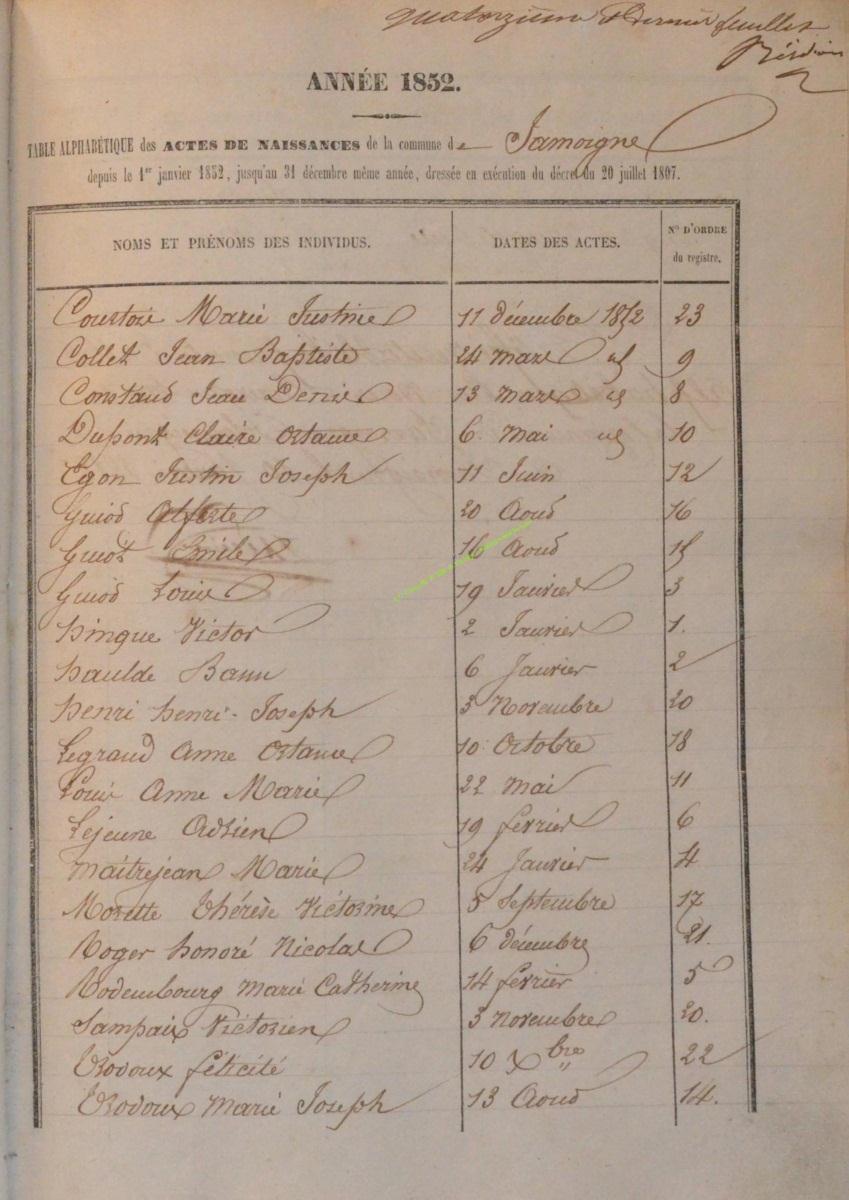 quatorzième & dernier feuillet
ANNÉE 1852.
TABLE ALPHABÉTIQUE des ACTES DE NAISSANCES de la commune de Jamoigne
depuis le 1er janvier 1852, jusqu'au 31 décembre même année, dressée en exécution du décret du 20 juillet 1807.
NOMS ET PRÉNOMS DES INDIVIDUS. DATES DES ACTES. N° D'ORDRE
du registre.
Marie Justine 11 décembre 1852 23
Collet Jean Baptiste 24 mars id 9
Constand Jean Denis 13 mars id 8
Dupont Claire Octavie 6 Mai id 10
Egon Justin Joseph 11 Juin 12
Guiod 20 Aoud 16
Guiot Emile 16 Aoud 15
Guiod Louis 19 Janvier 3
hinque Victor 2 Janvier 1.
haulde 6 Janvier 2
henri henri-Joseph 3 Novembre 20
Legrand Anne Octavie 10 Octobre 18
Louis Anne Marie 22 mai 11
Lejeune Adrien 19 fevrier 6
maitrejean Marie 24 Janvier 4
Morette Thérèse Victorine 5 Septembre 17
Roger honoré Nicolas 6 décembre 21.
Rodembourg marie Catherine 14 fevrier 5
Sampaix Victorien 3 novembre 20.
félicité 10 Xbre 22
Marie Joseph 13 Aoud 14.